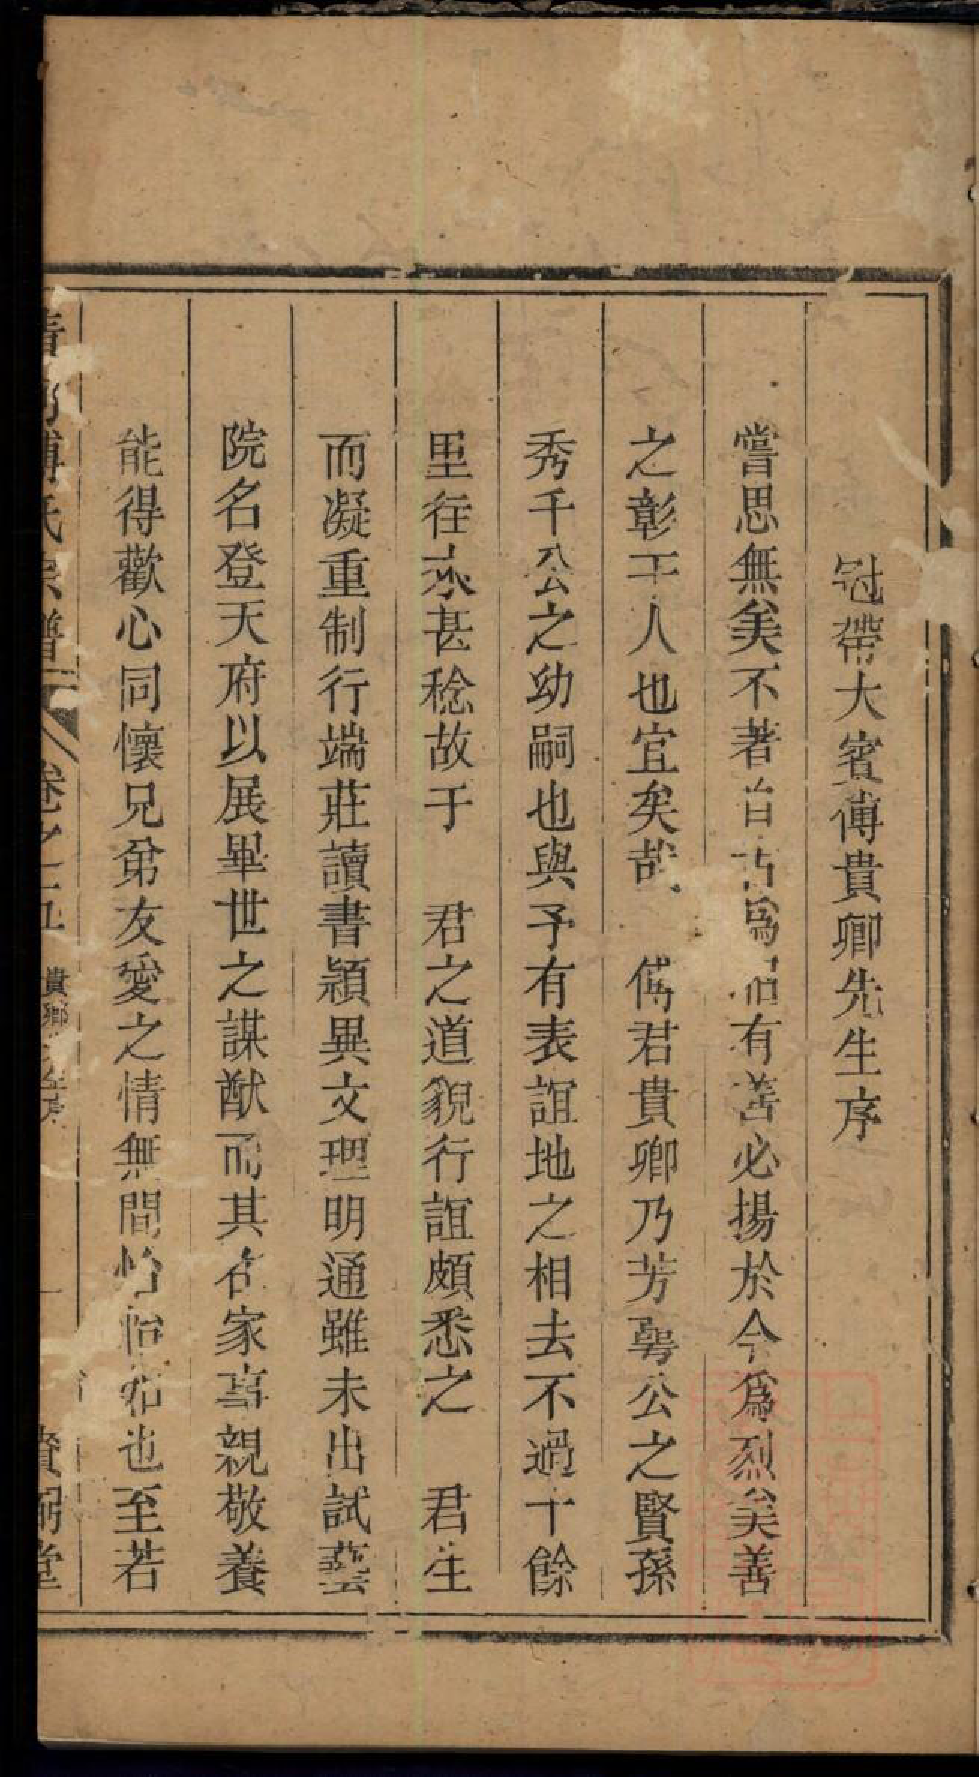 冠帶大賓傅貴卿先生序
嘗思無美不著自古爲昭有善必揚於今爲烈美善
之彰于人也宜矣哉 傅君貴卿乃芳萼公之賢孫
秀千公之幼嗣也與予有表誼地之相去不過十餘
里往來甚稔故于 君之道貌行誼頗悉之 君生
而凝重制行端莊讀書穎異文理明通雖未出試藝
院名登天府以展畢世之謀猷而其在家事親敬養
能得歡心同懷兄弟友愛之情無間怡怡如也至若
傅氏宗譜 卷之 五 貴卿 序 一 賚弼堂